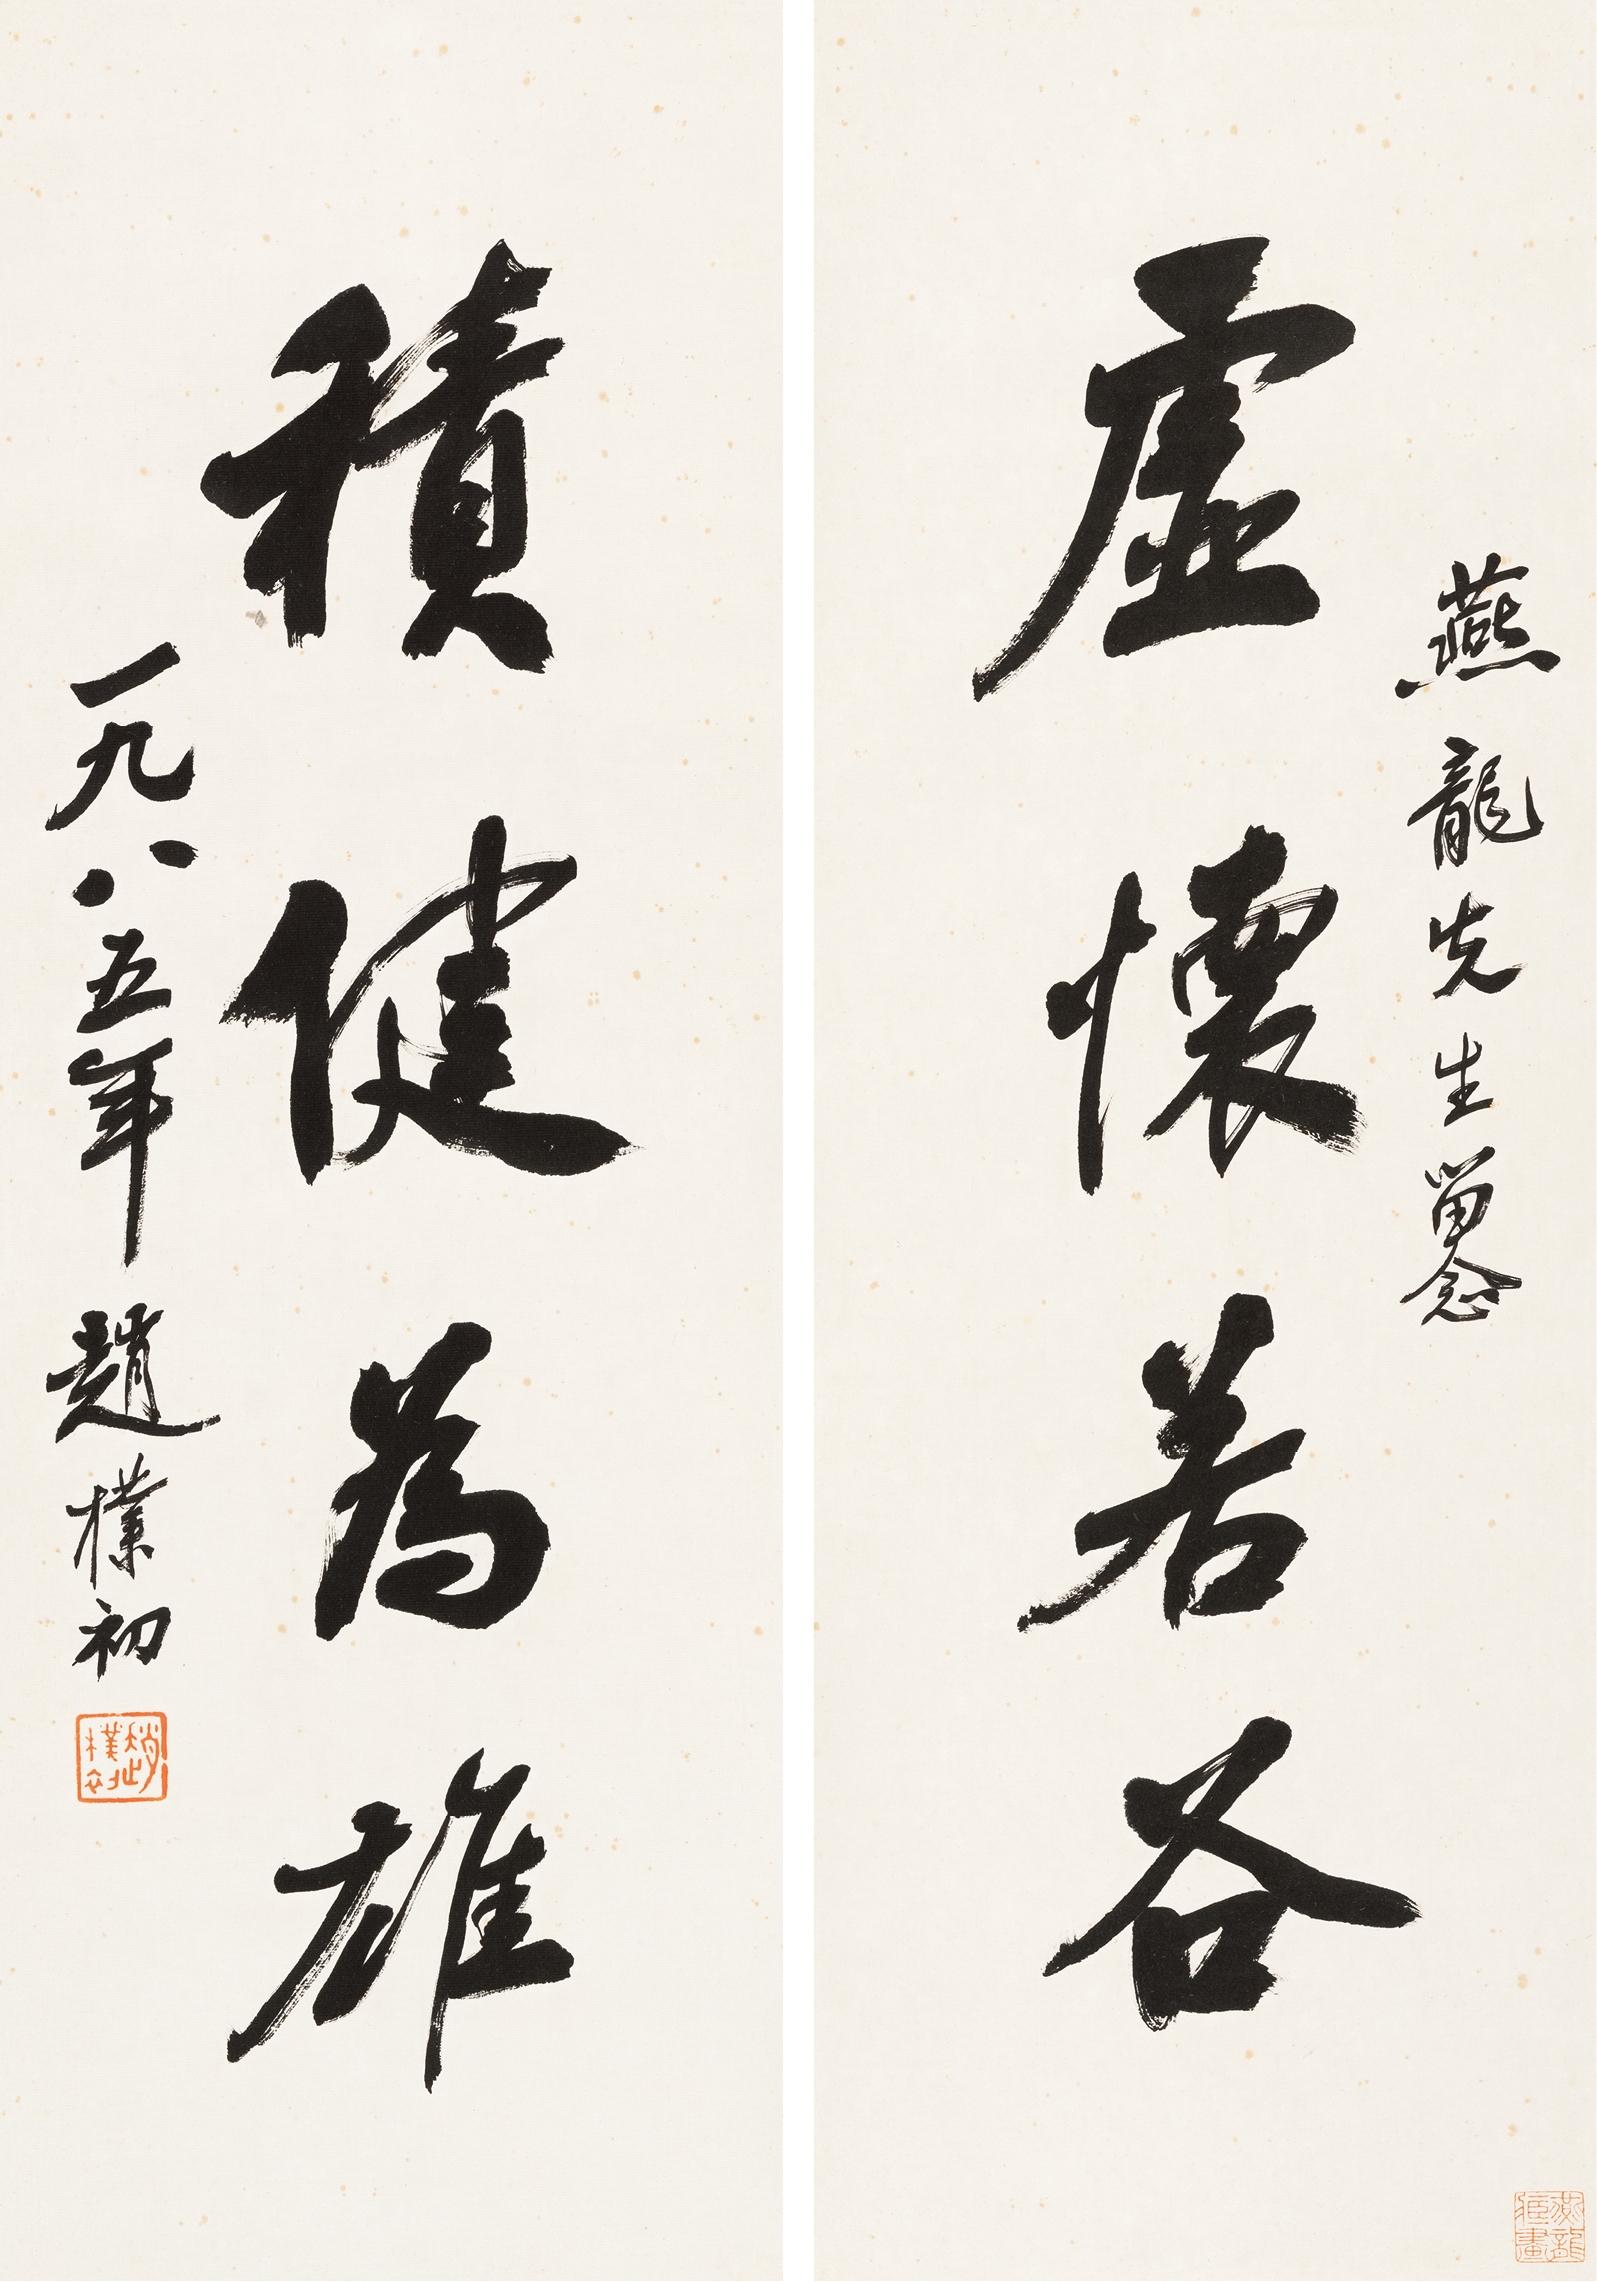 燕龍先生留念
虛懷若谷
積健為雄
一九八五年 趙樸初
趙樸初
燕龍藏畫